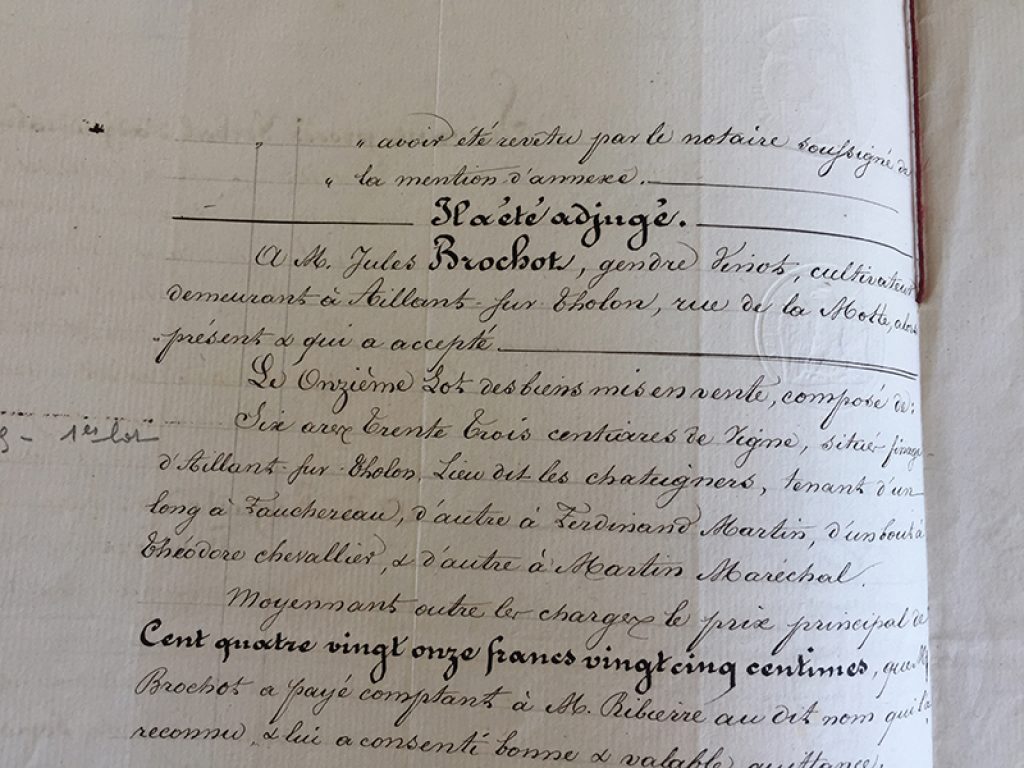 " " avoir été revetu par le notaire soussigné de
" la mention d'annexe.
Il a été adjugé.
A M. Jules Brochot, gendre Viriot, cultivateur
demeurant à Aillant-sur-Tholon, rue de la Motte, alors
présent & qui a accepté
Le Onzième Lot des biens mis en vente, composé de:
Six ares Trente Trois centiares de Vigne, situés finage
d'Aillant-sur-Tholon, Lieu dit les chateigners, tenant d'un
long à Fauchereau, d'autre à Ferdinand Martin, d'un bout à
Théodore chevallier, & d'autre à Martin Maréchal.
1er lot
Moyennant outre les charges le prix principal de
Cent quatre vingt onze francs vingt cinq centimes, que M.
Brochot a payé comptant à M. Ribierre au dit nom qui l'a
reconnu, & lui a consenti bonne & valable quittance.